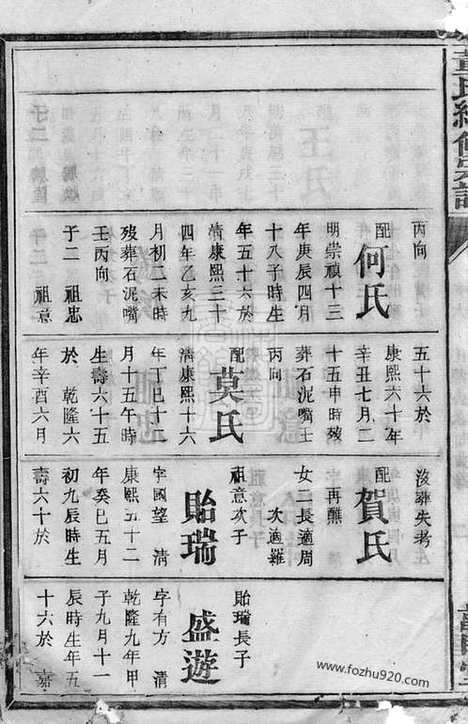 黃氏續修宗譜
丙向
配何氏
明崇禎十三
年庚辰四月
十八子時生
年五十六於
清康熙三十
四年乙亥九
月初二未時
歿葬石泥嘴
壬丙向
子二 祖忠
祖意
五十六於
康熙六十年
辛丑七月二
十五申時歿
葬石泥嘴壬
丙向
配莫氏
清康熙十六
年丁巳十五
月十五午時
生壽六十五
於 乾隆六
年辛酉六月
歿葬失考
配賀氏
再醮
女二長適周
次適羅
祖意次子
貽瑞
字國望 清
康熙五十二
年癸巳五月
初九辰時生
壽六十於
貽瑞長子
盛遊
字有方 清
乾隆九年甲
子九月十一
辰時生年五
十六於 嘉
www.fozhu920.com